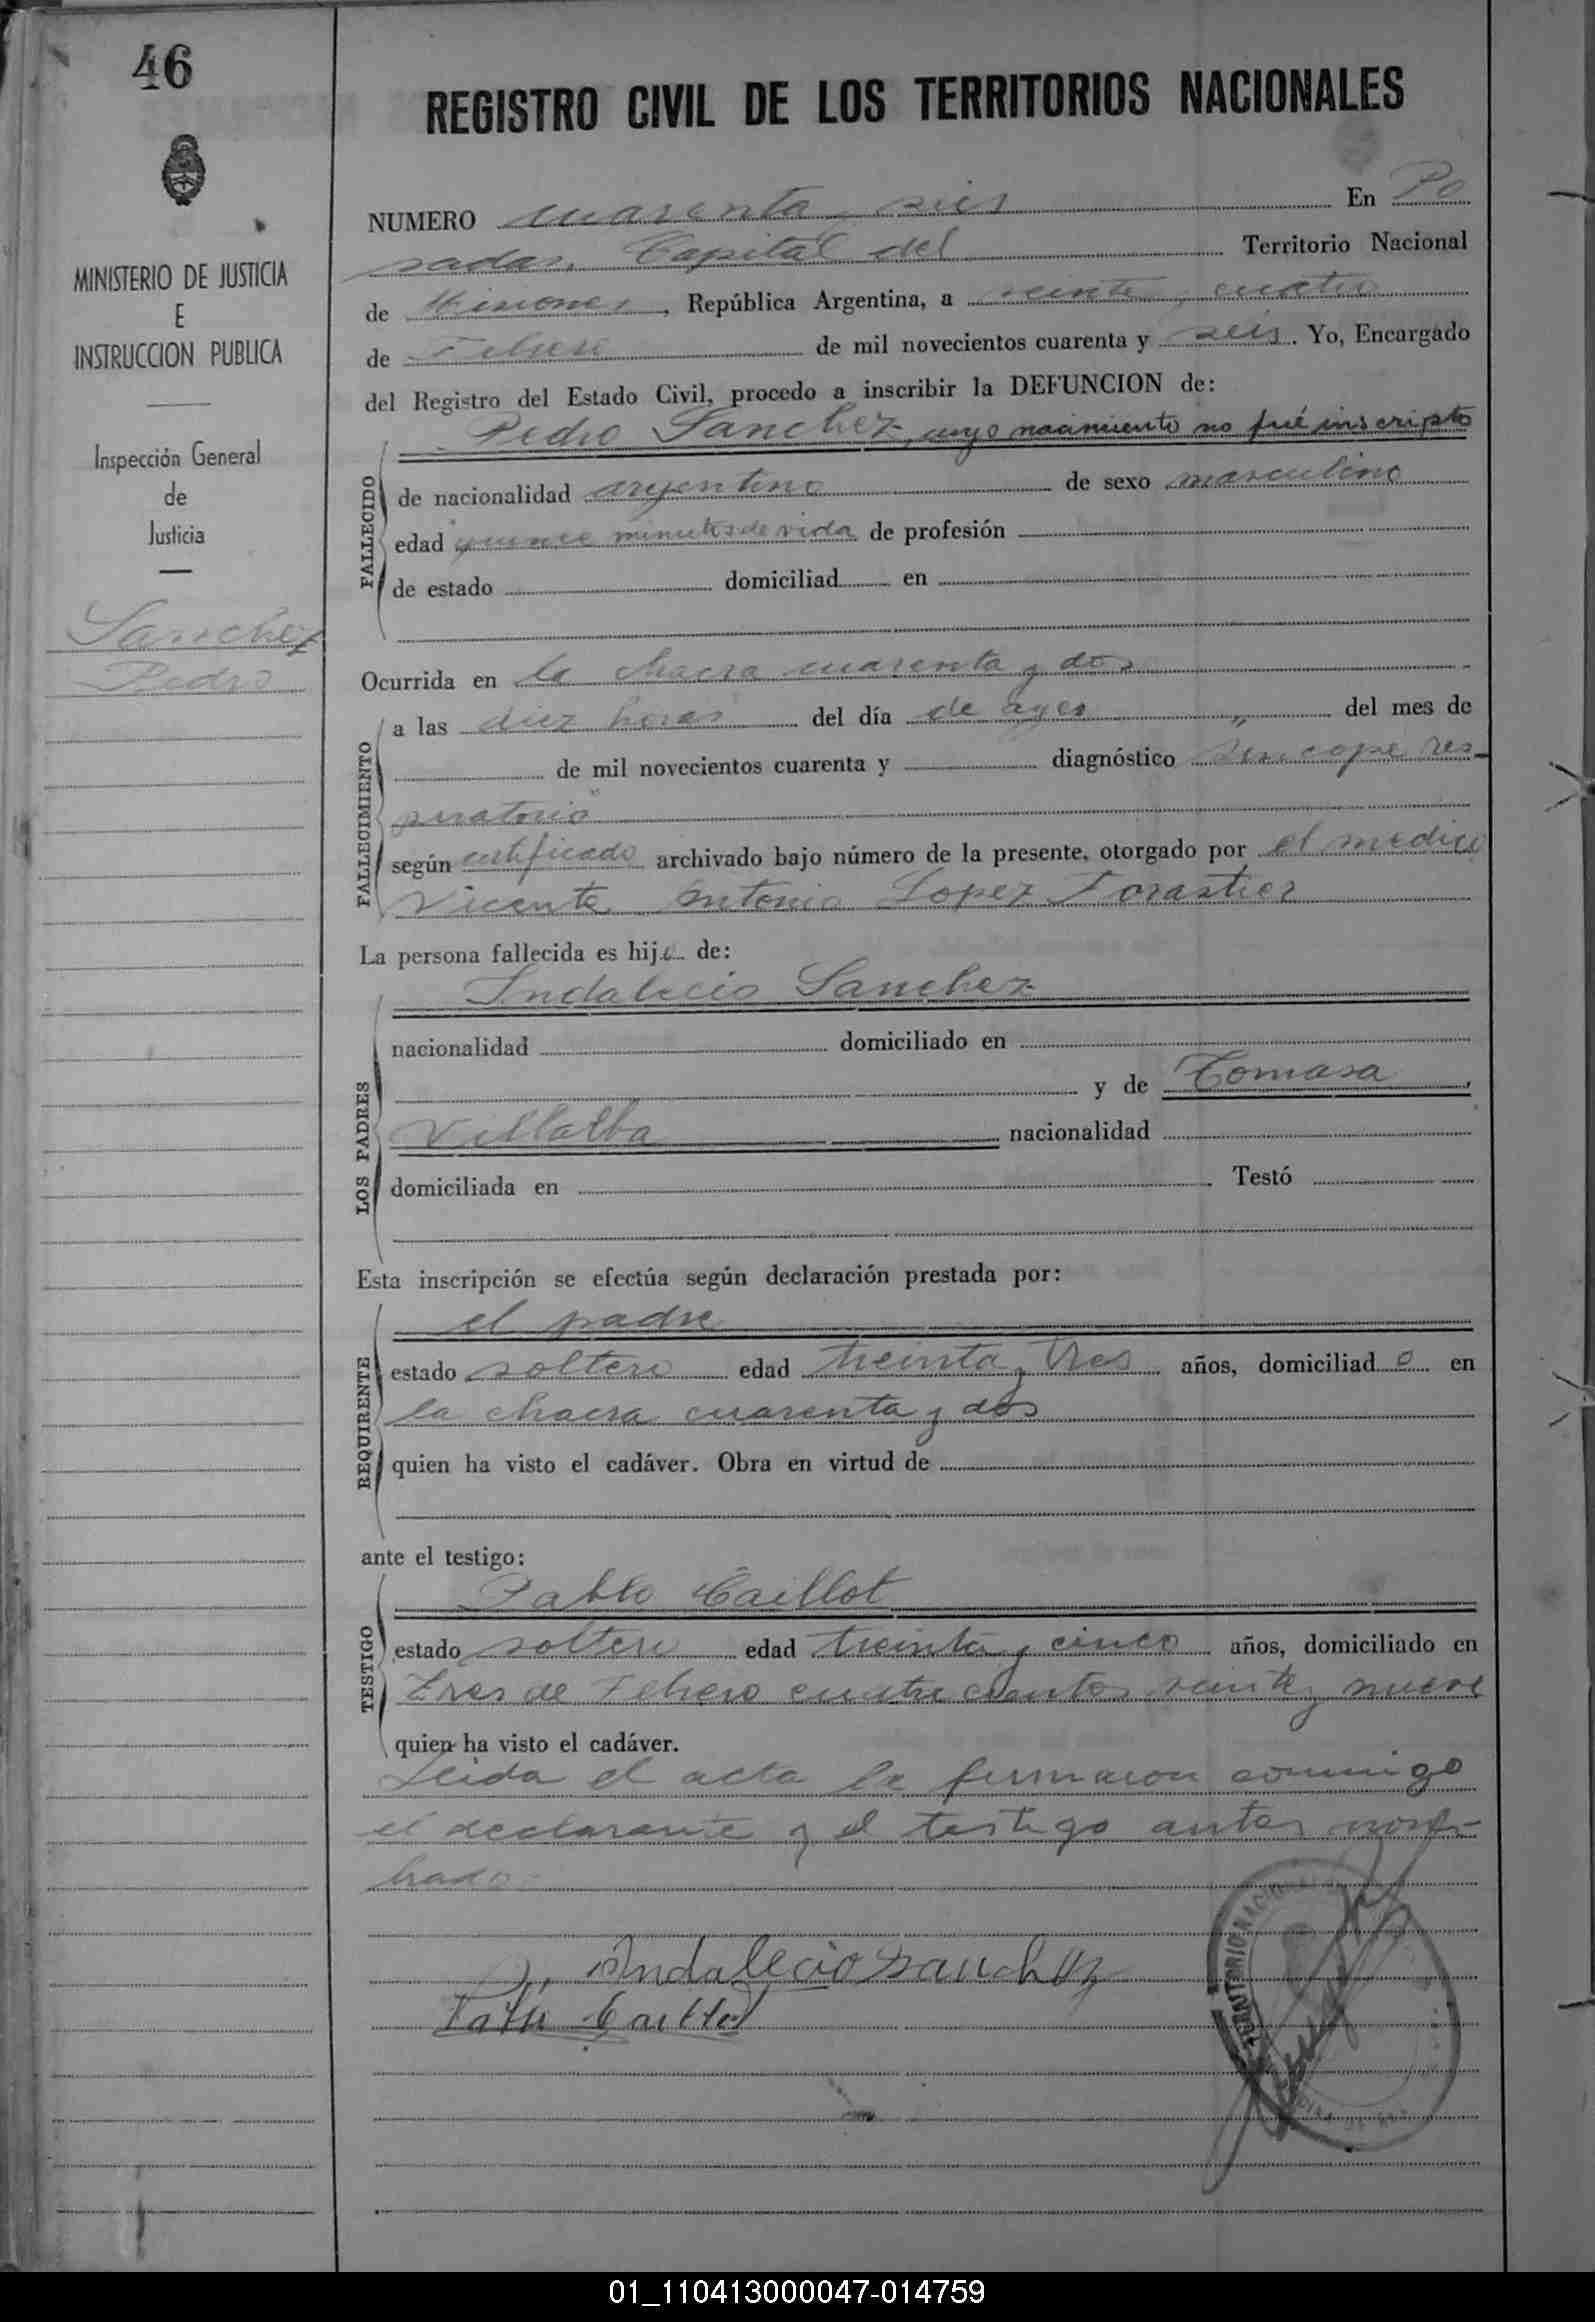 46
REGISTRO CIVIL DE LOS TERRITORIOS NACIONALES
MINISTERIO DE JUSTICIA
E
INSTRUCCION PUBLICA
Inspección General
de
Justicia
Sanchez
Pedro
NUMERO cuarenta y seis En Po
sadas, Capital del Territorio Nacional
de Misiones, República Argentina, a veinte y cuatro
de Febrero de mil novecientos cuarenta y seis. Yo, Encargado
del Registro del Estado Civil, procedo a inscribir la DEFUNCION de:
Pedro Sanchez, cuyo nacimiento no fué inscripto
FALLECIDO
de nacionalidad argentino de sexo masculino
edad quince minutos de vida de profesión
de estado domiciliad en
Ocurrida en la chacra cuarenta y dos
FALLECIMIENTO
a las diez horas del día de ayer „ del mes de
de mil novecientos cuarenta y diagnóstico sincope res-
piratorio
según certificado archivado bajo número de la presente, otorgado por el medico
Vicente Antonio Lopez Forastier
La persona fallecida es hijo de:
Indalecio Sanchez
LOS PADRES
nacionalidad domiciliado en
y de Tomasa
Villalba nacionalidad
domiciliada en Testó
Esta inscripción se efectúa según declaración prestada por:
el padre
REQUIRENTE
estado soltero edad treinta y tres años, domiciliado en
la chacra cuarenta y dos
quien ha visto el cadáver. Obra en virtud de
ante el testigo:
Pablo Caillot
TESTIGO
estado soltero edad treinta y cinco años, domiciliado en
Tres de Febrero cuatrocientos veinte y nueve
quien ha visto el cadáver.
Leida el acta la firmaron conmigo
el declarante y el testigo antes nom-
brado.
Indalecio Sanchez
Pablo Caillot
TERRITORIO NACIONAL
01_110413000047-014759